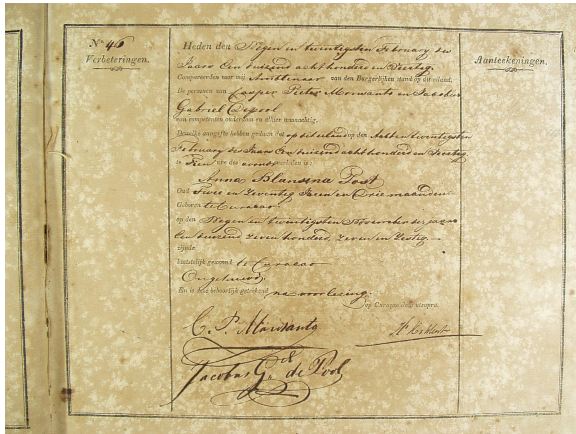 No 46
Verbeteringen.
Aanteekeningen.
Heden den Negen en twintigsten February des
Jaars Een duizend acht honderd en Veertig
Compareerden voor mij, Ambtenaar van den Burgerlijken stand op dit eiland,
De personen van Casper Pieter Morwanto en Jacobus
Gabriel Depool
van competenten ouderdom en alhier woonachtig.
Dezelve aangifte hebben gedaan dat op dit eiland op den Achten twintigsten
February des Jaars Een duizend acht honderd en Veertig
te Tien ure des avonds overleden is:
Anna Blansina Post
Oud Twee en Zeventig Jaren en Drie maanden
Geboren te Curacao
op den Negen en twintigsten November des jaars
Een duizend zeven honderd, zeven en zestig.
zijnde
laatstelijk gewoond te Curacao
Ongehuwd
En is deze behoorlijk geteekend na voorlezing.
op Curaçao dato utsupra.
C. P. Morwanto
Jacobus Gl de Pool